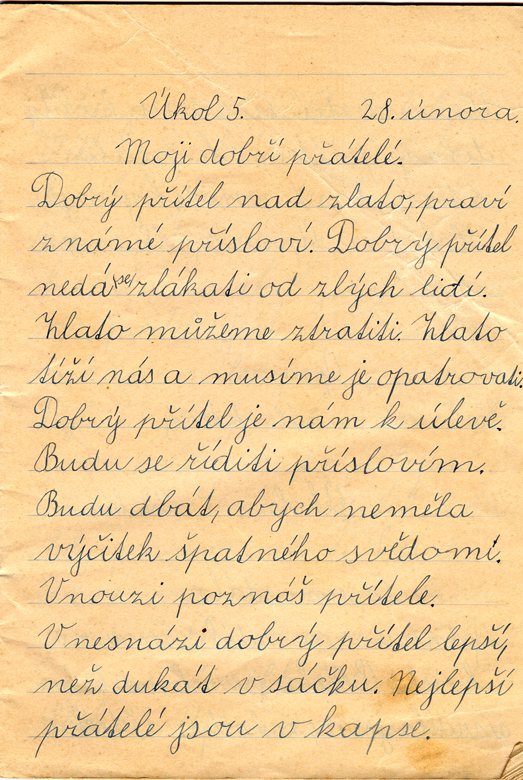 Úkol 5. 28. února.
Moji dobří přátelé.
Dobrý přítel nad zlato, praví
známé přísloví. Dobrý přítel
nedá se zlákati od zlých lidí.
Zlato můžeme ztratiti. Zlato
tíží nás a musíme je opatrovati.
Dobrý přítel je nám k úlevě.
Budu se říditi příslovím.
Budu dbát, abych neměla
výčitek špatného svědomí.
V nouzi poznáš přítele.
V nesnázi dobrý přítel lepší,
než dukát v sáčku. Nejlepší
přátelé jsou v kapse.